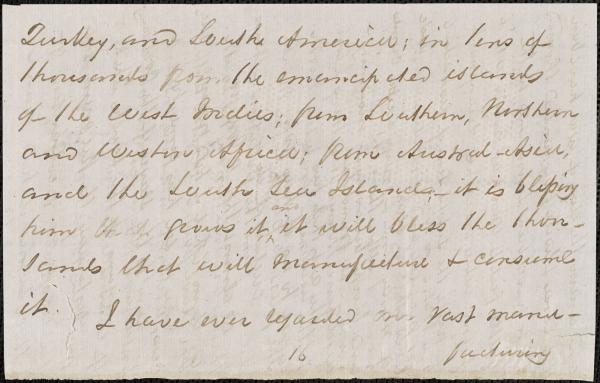 Turkey, and South America; in tens of
thousands from the emancipated islands
of the West Indies; from Southern, Northern
and Western Africa; from Austral-Asia,
and the South Sea Islands,– it is blessing
him that grows it, and it will bless the thou-
sands that will manufacture & consume
it. I have ever regarded our vast manu-
16 facturing